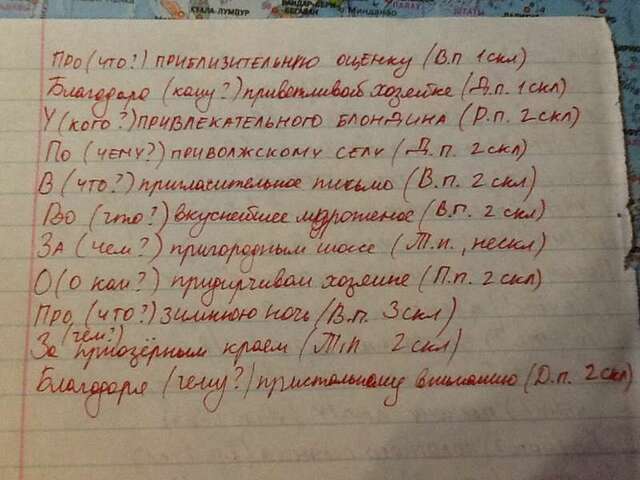 КУАЛА-ЛУМПУР
БАНДАР-СЕРИ-
БЕГАВАН
Минданао
ПАЛАУ
ШТАТЫ
Палитир
Про (что?) приблизительную оценку (В.п 1скл)
Благодаря (кому?) приветливой хозяйке (Д.п. 1скл)
У (кого?) привлекательного блондина (Р.п. 2скл)
По (чему?) приволжскому селу (Д.п. 2скл)
В (что?) пригласительное письмо (В.п. 2скл)
Во (что?) вкуснейшее мороженое (В.п. 2 скл)
За (чем?) пригородным шоссе (Т.п., нескл)
О (о ком?) придирчивом хозяине (П.п. 2скл)
Про (что?) зимнюю ночь (В.п. 3скл)
(чем?)
За приозёрным краем (Т.п 2 скл)
Благодаря (чему?) пристальному вниманию (Д.п. 2скл)